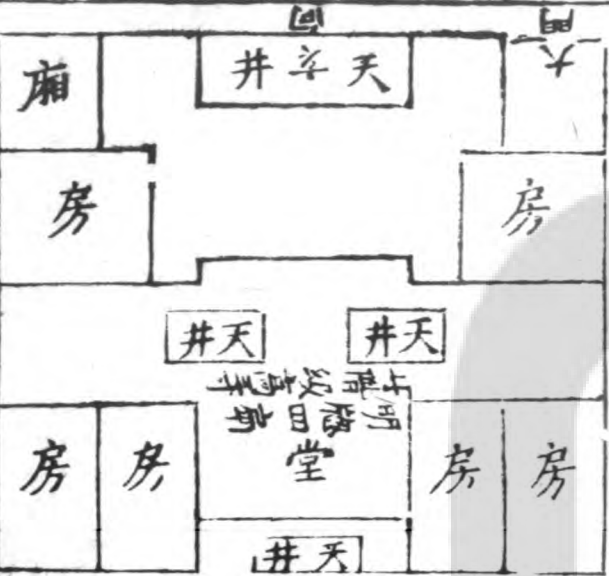 向
大門
廂
天字井
房
房
天井
天井
堂
房
房
房
房
天井